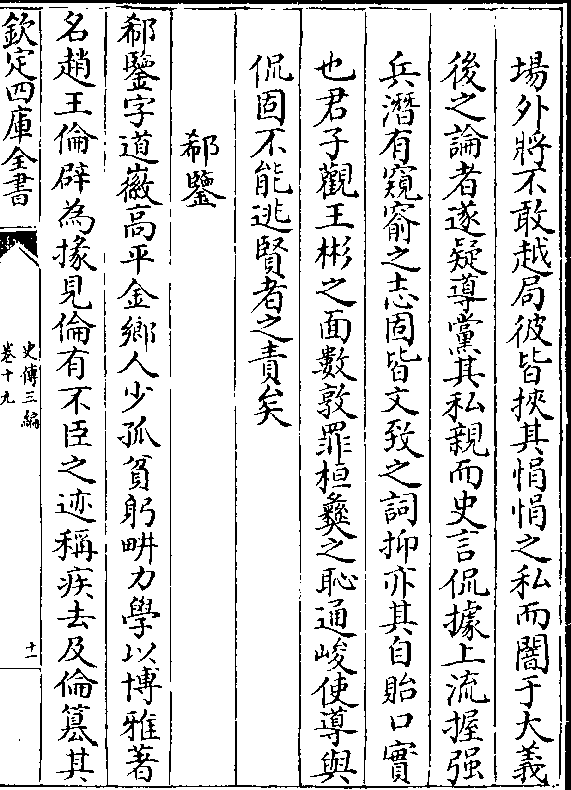 場外將不敢越局彼皆挾其悁悁之私而闇于大義
後之論者遂疑導黨其私親而史言侃據上流握强
兵潛有窺窬之志固皆文致之詞抑亦其自貽口實
也君子觀王彬之面數敦罪桓彝之恥通峻使導與
侃固不能逃賢者之責矣
郗鑒
郗鑒字道徽高平金鄉人少孤貧躬畊力學以博雅著
名趙王倫辟為掾見倫有不臣之迹稱疾去及倫簒其
欽定四庫全書
史傳三編
卷十九
十一